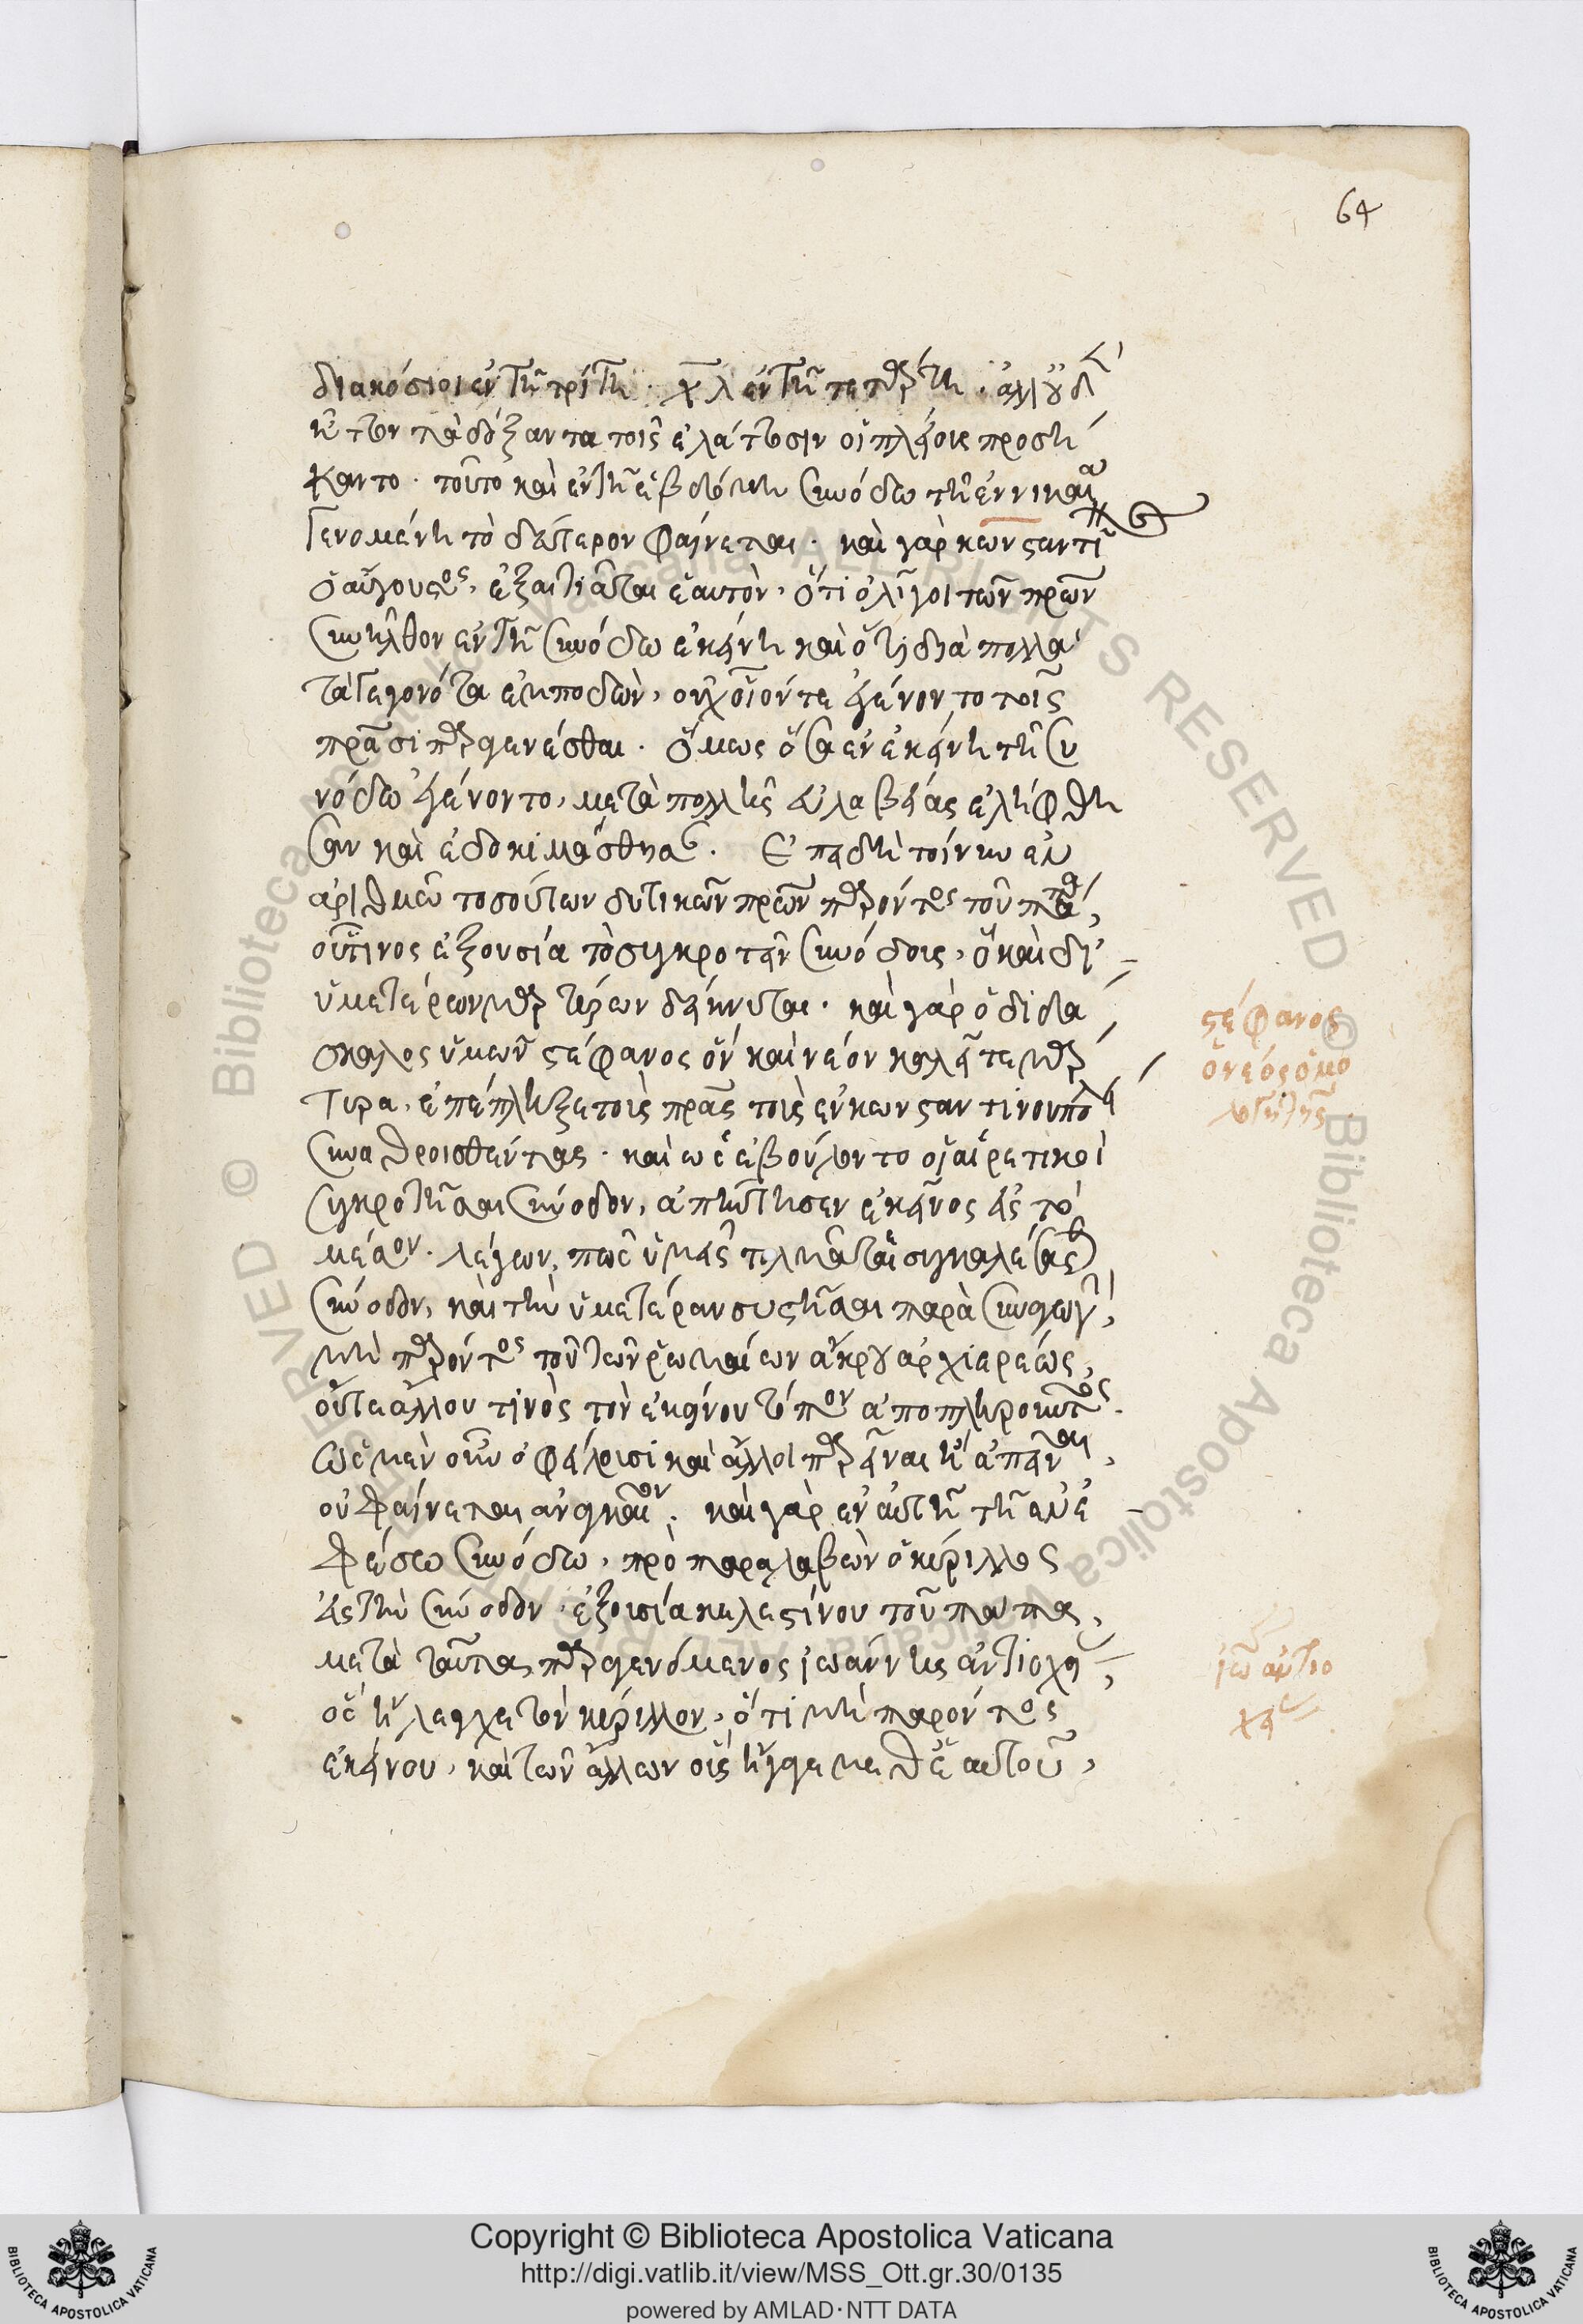 64
διακόσιοι ἐν τῇ τρίτῃ · χλ ἐν τῇ τετάρτῃ · ἀλλ' οὐδ
τὰ δόξαντα τοῖς ἐλάττοσιν οἱ πλείους προσή
καντο · τοῦτο καὶ ἐν τῇ ἑβδόμῃ συνόδω τῇ ἐν νικαία
γενομένη τὸ δεύτερον φαίνεται · καὶ γὰρ κωνσταντῖ
ὁ αὔγουστος, ἐξαιτιᾶται ἑαυτὸν, ὅτι ὀλίγοι τῶν πρων
συνῆλθον ἐν τῇ συνόδω ἐκείνη καὶ ὅτι διὰ πολλὰ
τὰ γεγονότα ἐμποδὼν, οὐχ οἷόντε ἐγένοντο τοῖς
πράσι παραγενέσθαι · ὅμως ὅσα ἐν ἐκείνη τῇ συ
νόδω ἐγένοντο, μετὰ πολλῆς εὐλαβείας ἐλήφθη
σαν καὶ ἐδοκιμάσθησαν · ἐπειδὴ τοίνυν ἐν
ἀριθμῶ τοσούτων δυτικῶν πρων παρόντος τοῦ πάπα,
οὗτινος ἐξουσία τὸ συγκροτεῖν συνόδοις, ὃ καὶ δι'
ὑμετέρων μαρτύρων δείκνυται · καὶ γὰρ ὁ διδά
σκαλος ὑμῶν στέφανος ὃν καὶ νέον καλεῖτε μάρ
τυρα, ἐπέπληξε τοῖς πρας τοῖς ἐν κωνσταντινουπόλει
συναθροισθέντας · καὶ ὡς ἐβούλοντο οἱ αἱρετικοὶ
συγκροτῆσαι σύνοδον, ἀπήντησεν ἐκεῖνος εἰς τὸ
μέσον · λέγων, πῶς ὑμεῖς τολμᾶται συγκαλέσας
σύνοδον, καὶ τὴν ὑμετέραν συστῆσαι παρὰ συναγωγ,
μὴ παρόντος τοῦ τῶν ῥωμαίων ἄκρου ἀρχιερεώς,
οὔτε ἄλλου τινὸς τὸν ἐκείνου τόπον ἀποπληροῦντος ·
ὡς μὲν οὖν ὀφείλουσι καὶ ἄλλοι παρεῖναι
οὐ φαίνεται ἀναγκαῖον · καὶ γὰρ ἐν αὐτῇ τῇ ἐν ἐ
φέσω συνόδω, προπαραλαβὼν ὁ κύριλλος
εἰς τὴν σύνοδον ἐξουσία κελεστίνου τοῦ πάπα,
μετὰ ταῦτα, παραγενόμενος ἰωάννης ἀντιοχεί,
ὃς ἤλεγχε τὸν κύριλλον, ὅτι μὴ παρόντος
ἐκείνου, καὶ τῶν ἄλλων οἷς ἤγαγε μεθ' ἑαυτοῦ,
στέφανος
ὁ νέος ὁμο
λογητής
ἰω ἀντιο
χεί
© Biblioteca Apostolica Vaticana ALL RIGHTS RESERVED
Copyright © Biblioteca Apostolica Vaticana
http://digi.vatlib.it/view/MSS_Ott.gr.30/0135
powered by AMLAD·NTT DATA
BIBLIOTECA APOSTOLICA VATICANA
BIBLIOTECA APOSTOLICA VATICANA